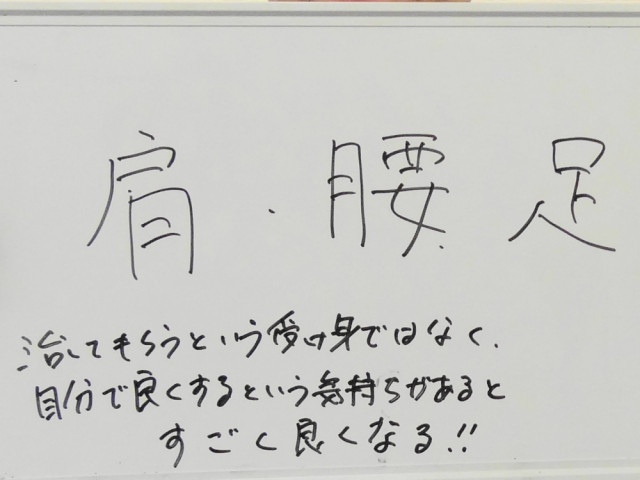 肩・腰 足
治してもらうという受け身ではなく、
自分で良くするという気持ちがあると
すごく良くなる!!